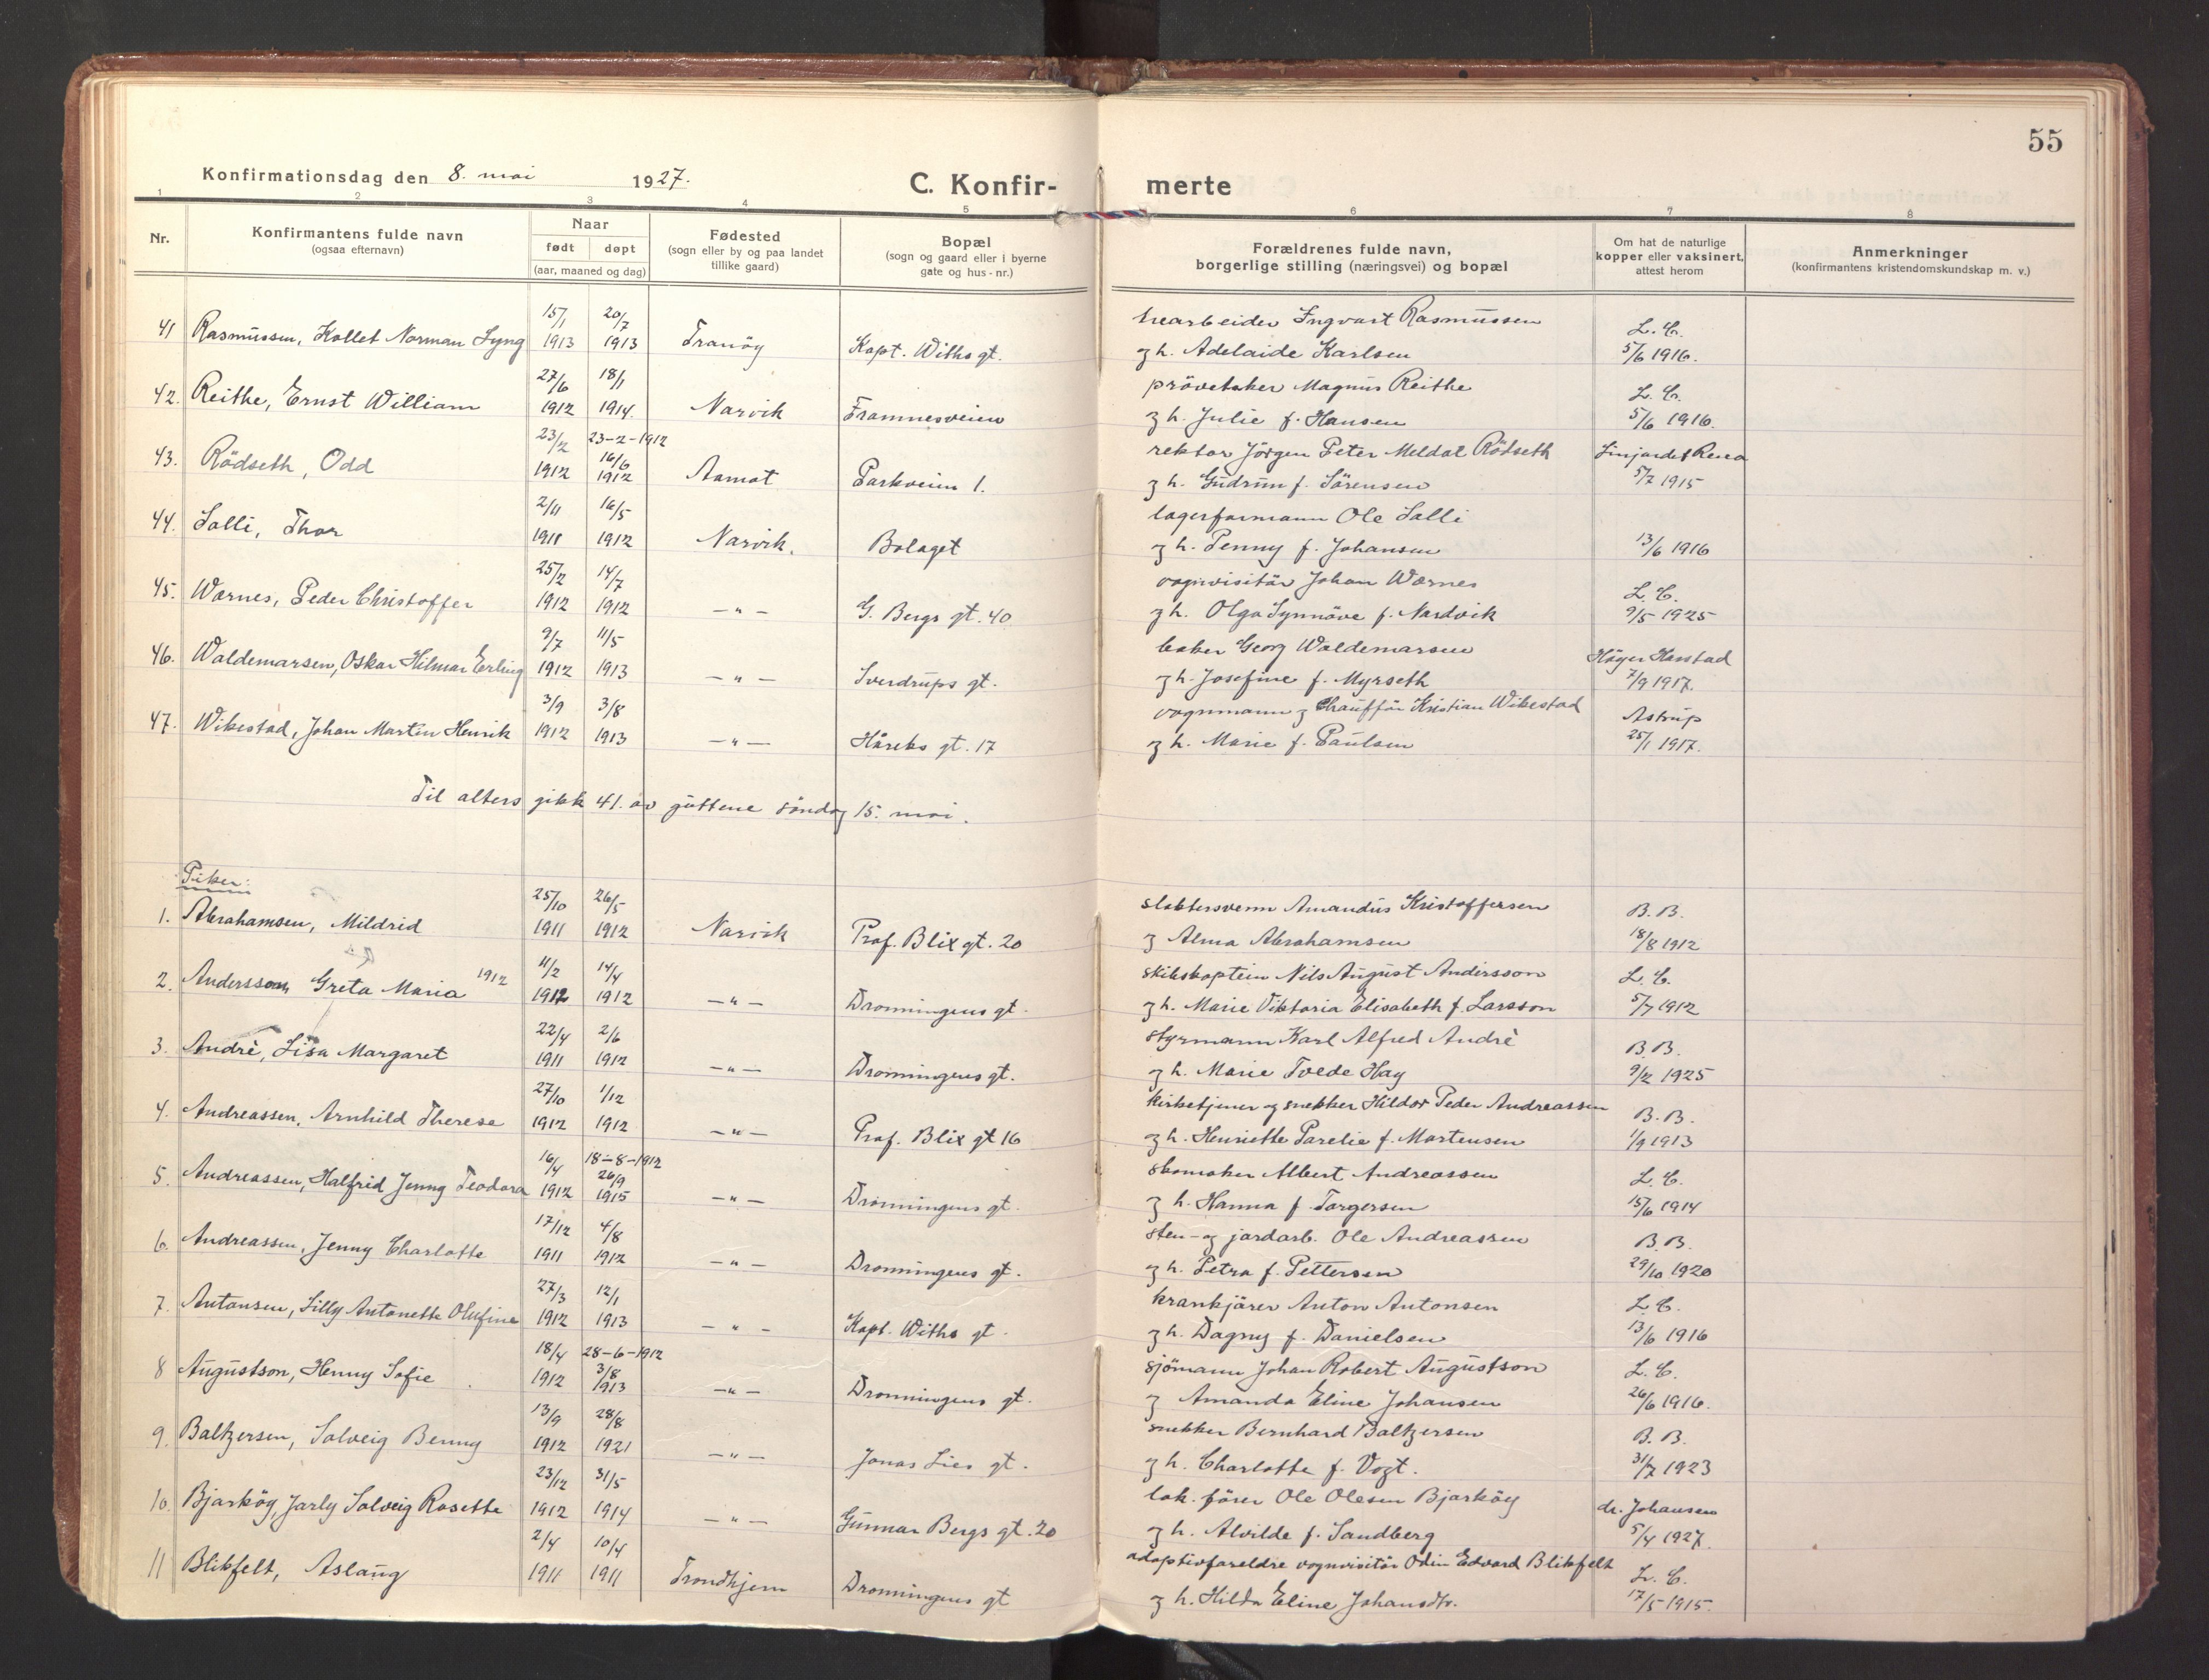 55
Konfirmationsdag den 8. mai 1927.
C. Konfir- merte
1 2 3 4 5 6 7 8
Nr.
Konfirmantens fulde navn
(ogsaa efternavn)
Naar
født døpt
(aar, maaned og dag)
Fødested
(sogn eller by og paa landet
tillike gaard)
Bopæl
(sogn og gaard eller i byerne
gate og hus-nr.)
Forældrenes fulde navn,
borgerlige stilling (næringsvei) og bopæl
Om hat de naturlige
kopper eller vaksinert,
attest herom
Anmerkninger
(konfirmantens kristendomskundskap m. v.)
15/1 20/7 Ingvart Rasmussen L. C.
41 Rasmussen, Kollet Norman Lyng 1913 1913 Tranöy Kapt. Withs gt. g h. Adelaide Karlsen 5/6 1916.
27/6 18/1 prövetaker Magnus Reithe L. C.
42. Reithe, Ernst William 1912 1914. Narvik Framnesveien g h. Julie f. Hansen 5/6 1916.
23/2 23-2-1912 rektor Jörgen Peter Meldal Rödseth
43. Rödseth, Odd 1912 16/6 1912 Aamot Parkveien 1. g h. Gudrun f. Sörensen 5/7 1915
2/11 16/5 lagerformann Ole Salli
44. Salli, Thor 1911 1912 Narvik. Bolaget g h. Penny f. Johansen 13/6 1916
25/2 14/7 vognvisitör Johan Wærnes L. C.
45. Wærnes, Peder Christoffer 1912 1912 -"- G. Bergs gt. 40 g h. Olga Synnöve f. Nardvik 9/5 1925
9/7 11/5 baker Georg Waldemarsen Häyer Harstad
46. Waldemarsen, Oskar Hilmar Erling 1912 1913 -"- Sverdrups gt. g h. Josefine f. Myrseth 7/9 1917.
3/9 3/8 vognmann g chaufför Kristian Wikestad Astrup
47. Wikestad, Johan Martin Henrik 1912 1913 -"- Håreks gt. 17 g h. Marie f. Paulsen 25/1 1917.
Til alters gikk 41. av guttene söndag 15. mai.
Piker:
25/10 26/5 slaktersvenn Amandus Kristoffersen B. B.
1. Abrahamsen, Mildrid 1911 1912 Narvik Prof. Blix gt. 20 g Alma Abrahamsen 18/8 1912
11/2 14/4 skibskaptein Nils August Andersson L. C.
2. Andersson, Greta Maria 1912 1912 1912 -"- Dronningens gt. g h. Marie Viktoria Elisabeth f. Larsson 5/7 1912
22/4 2/6 styrmann Karl Alfred Andrè B. B.
3. Andrè, Lisa Margaret 1911 1912 -"- Dronningens gt. g h. Marie Tvede Hag 9/2 1925
27/10 1/12 kirketjener og snekker Hildor Peder Andreassen B. B.
4. Andreassen, Arnhild Therese 1912 1912 -"- Prof. Blix gt 16 g h. Henriette Parelie f. Mortensen 1/9 1913
16/4 18-8-1912 skomaker Albert Andreassen L. C.
5. Andreassen, Halfrid Jenny Teodora 1912 26/9 1915 -"- Dronningens gt. g h. Hanna f. Torgersen 15/6 1914
17/12 4/8 sten- og jordarb. Ole Andreassen B. B.
6. Andreassen, Jenny Charlotte 1911 1912 -"- Dronningens gt. g h. Petra f. Pettersen 29/10 1920
27/3 12/1 krankjörer Anton Antonsen L. C.
7. Antonsen, Lilly Antonette Olufine 1912 1913 - " - Kapt. Withs gt. g h. Dagny f. Danielsen 13/6 1916
18/4 28-6-1912 sjömann Johan Robert Augustson L. C.
8 Augustson, Henny Sofie 1912 3/8 1913 -"- Dronningens gt. g Amanda Eline Johansen 26/6 1916.
13/9 28/8 snekker Bernhard Baltzersen B. B.
9. Baltzersen, Solveig Benny 1912 1921 -"- Jonas Lies gt. g h. Charlotte f. Vogt. 31/7 1923
23/12 31/5 lok. förer Ole Olesen Bjarköy dr. Johansen
10. Bjarköy, Jarly Solveig Rosette 1912 1914 -"- Gunnar Bergs gt. 20 g h. Alvilde f. Sandberg 5/4 1927.
2/4 10/4 adoptivforeldre vognvisitör Odin Edvard Blikfelt L. C.
11 Blikfelt, Aslaug 1911 1911 Trondhjem Dronningens gt g h. Hilda Eline Johansdtr. 17/5 1915.